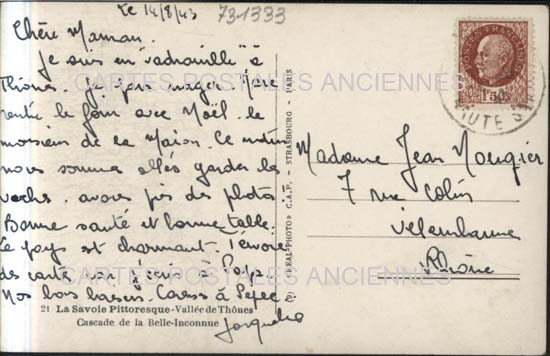 le 14/8/43
731333
Chère Maman.
Je suis en "vadrouille" à
Thônes. J'ai pas nager.
rentré le foin avec Noël. le
monsieur de la Maison. Ce matin
nous sommes allés garder les
vaches. avons pris des photos.
Bonne santé et bonne table.
Le pays est charmant. J'envoie
des cartes à Papa
Nos bons baisers. Caress à Pépée
21 La Savoie Pittoresque - Vallée de Thônes
Cascade de la Belle-Inconnue
(R) «REAL-PHOTO» C.A.P. - STRASBOURG - PARIS
POSTES FRANÇAISES
1F50
HUTE S
Madame Jean Mougier
7 rue Colin
Villeurbanne
Rhône
CARTES POSTALES ANCIENNES
CARTES POSTALES ANCIENNES